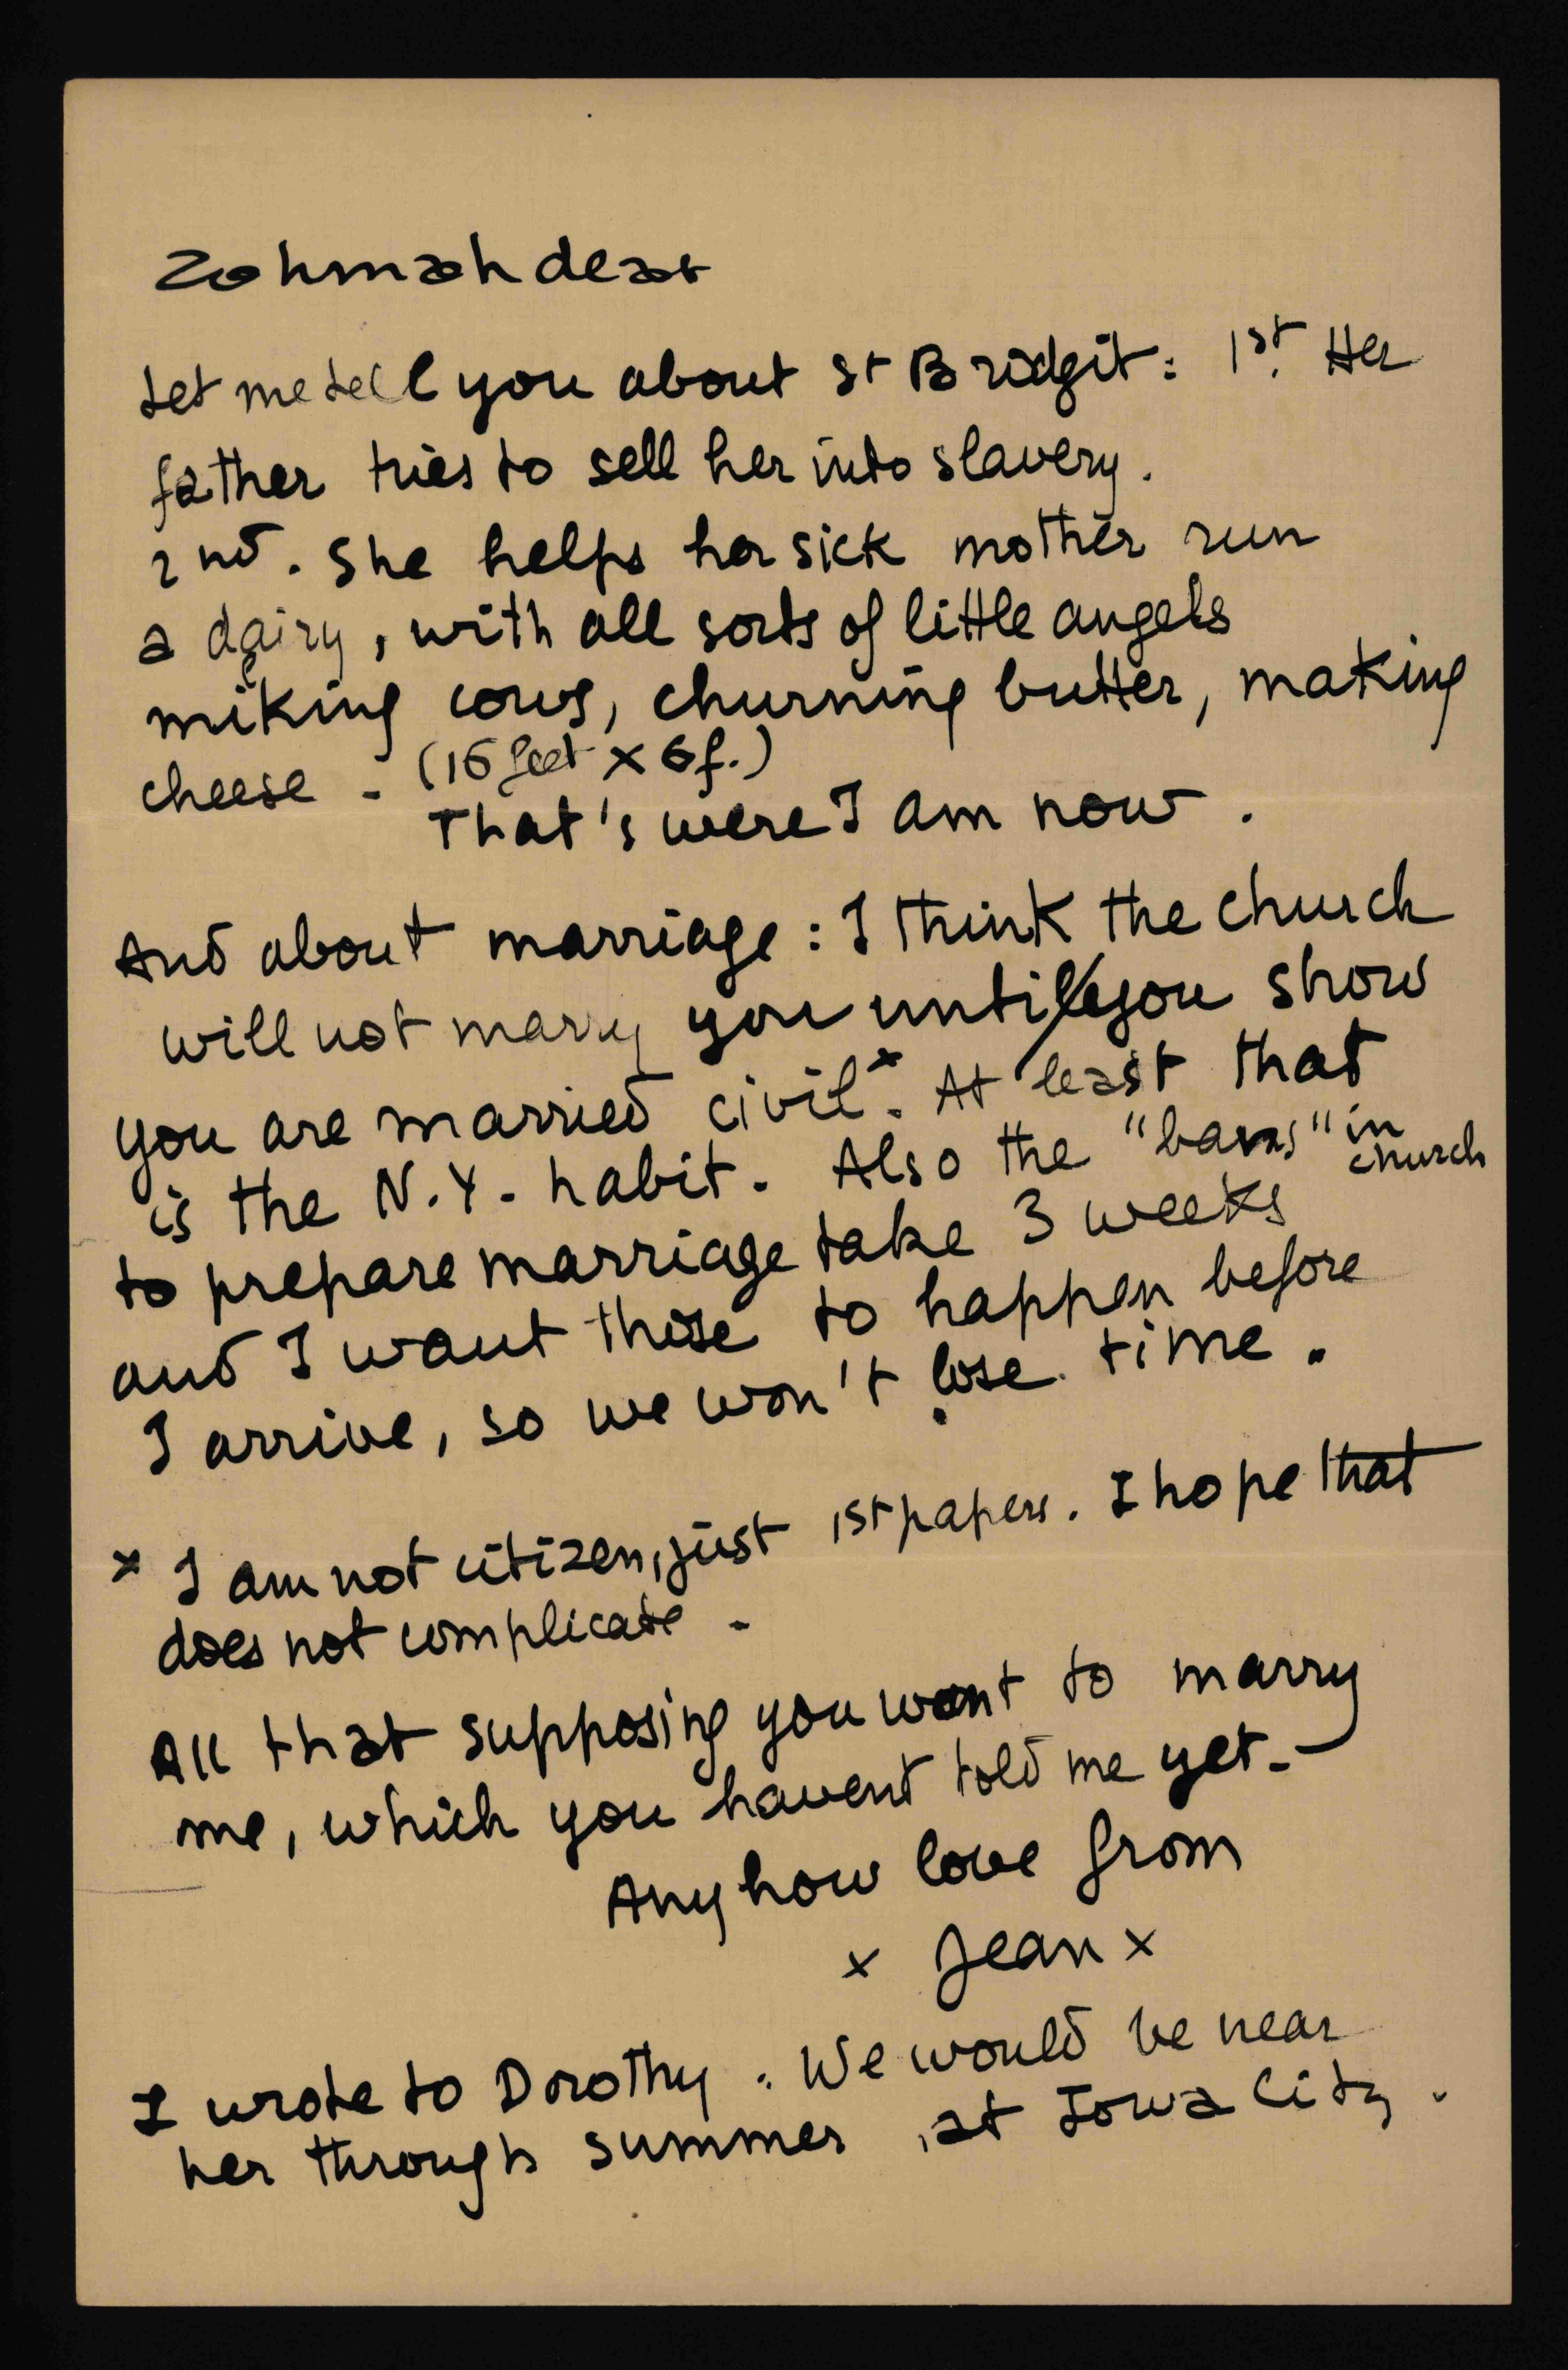 Zohmah dear
Let me tell you about St Bridgit: 1st. Her
father tries to sell her into slavery.
2nd. She helps her sick mother run
a dairy, with all sorts of little angels
milking cows, churning butter, making
cheese - (16 feet x 6 f.)
That's were I am now.
And about marriage: I think the church
will not marry you until you show
you are married civil x. At least that
is the N.Y. habit. Also the "bans" in church
to prepare marriage take 3 weeks
and I want these to happen before
I arrive, so we won't lose time.
x I am not citizen, just 1st papers. I hope that
does not complicate -
All that supposing you want to marry
me, which you havent told me yet. -
Anyhow love from
x Jean x
I wrote to Dorothy. We would be near
her through summer, at Iowa City.